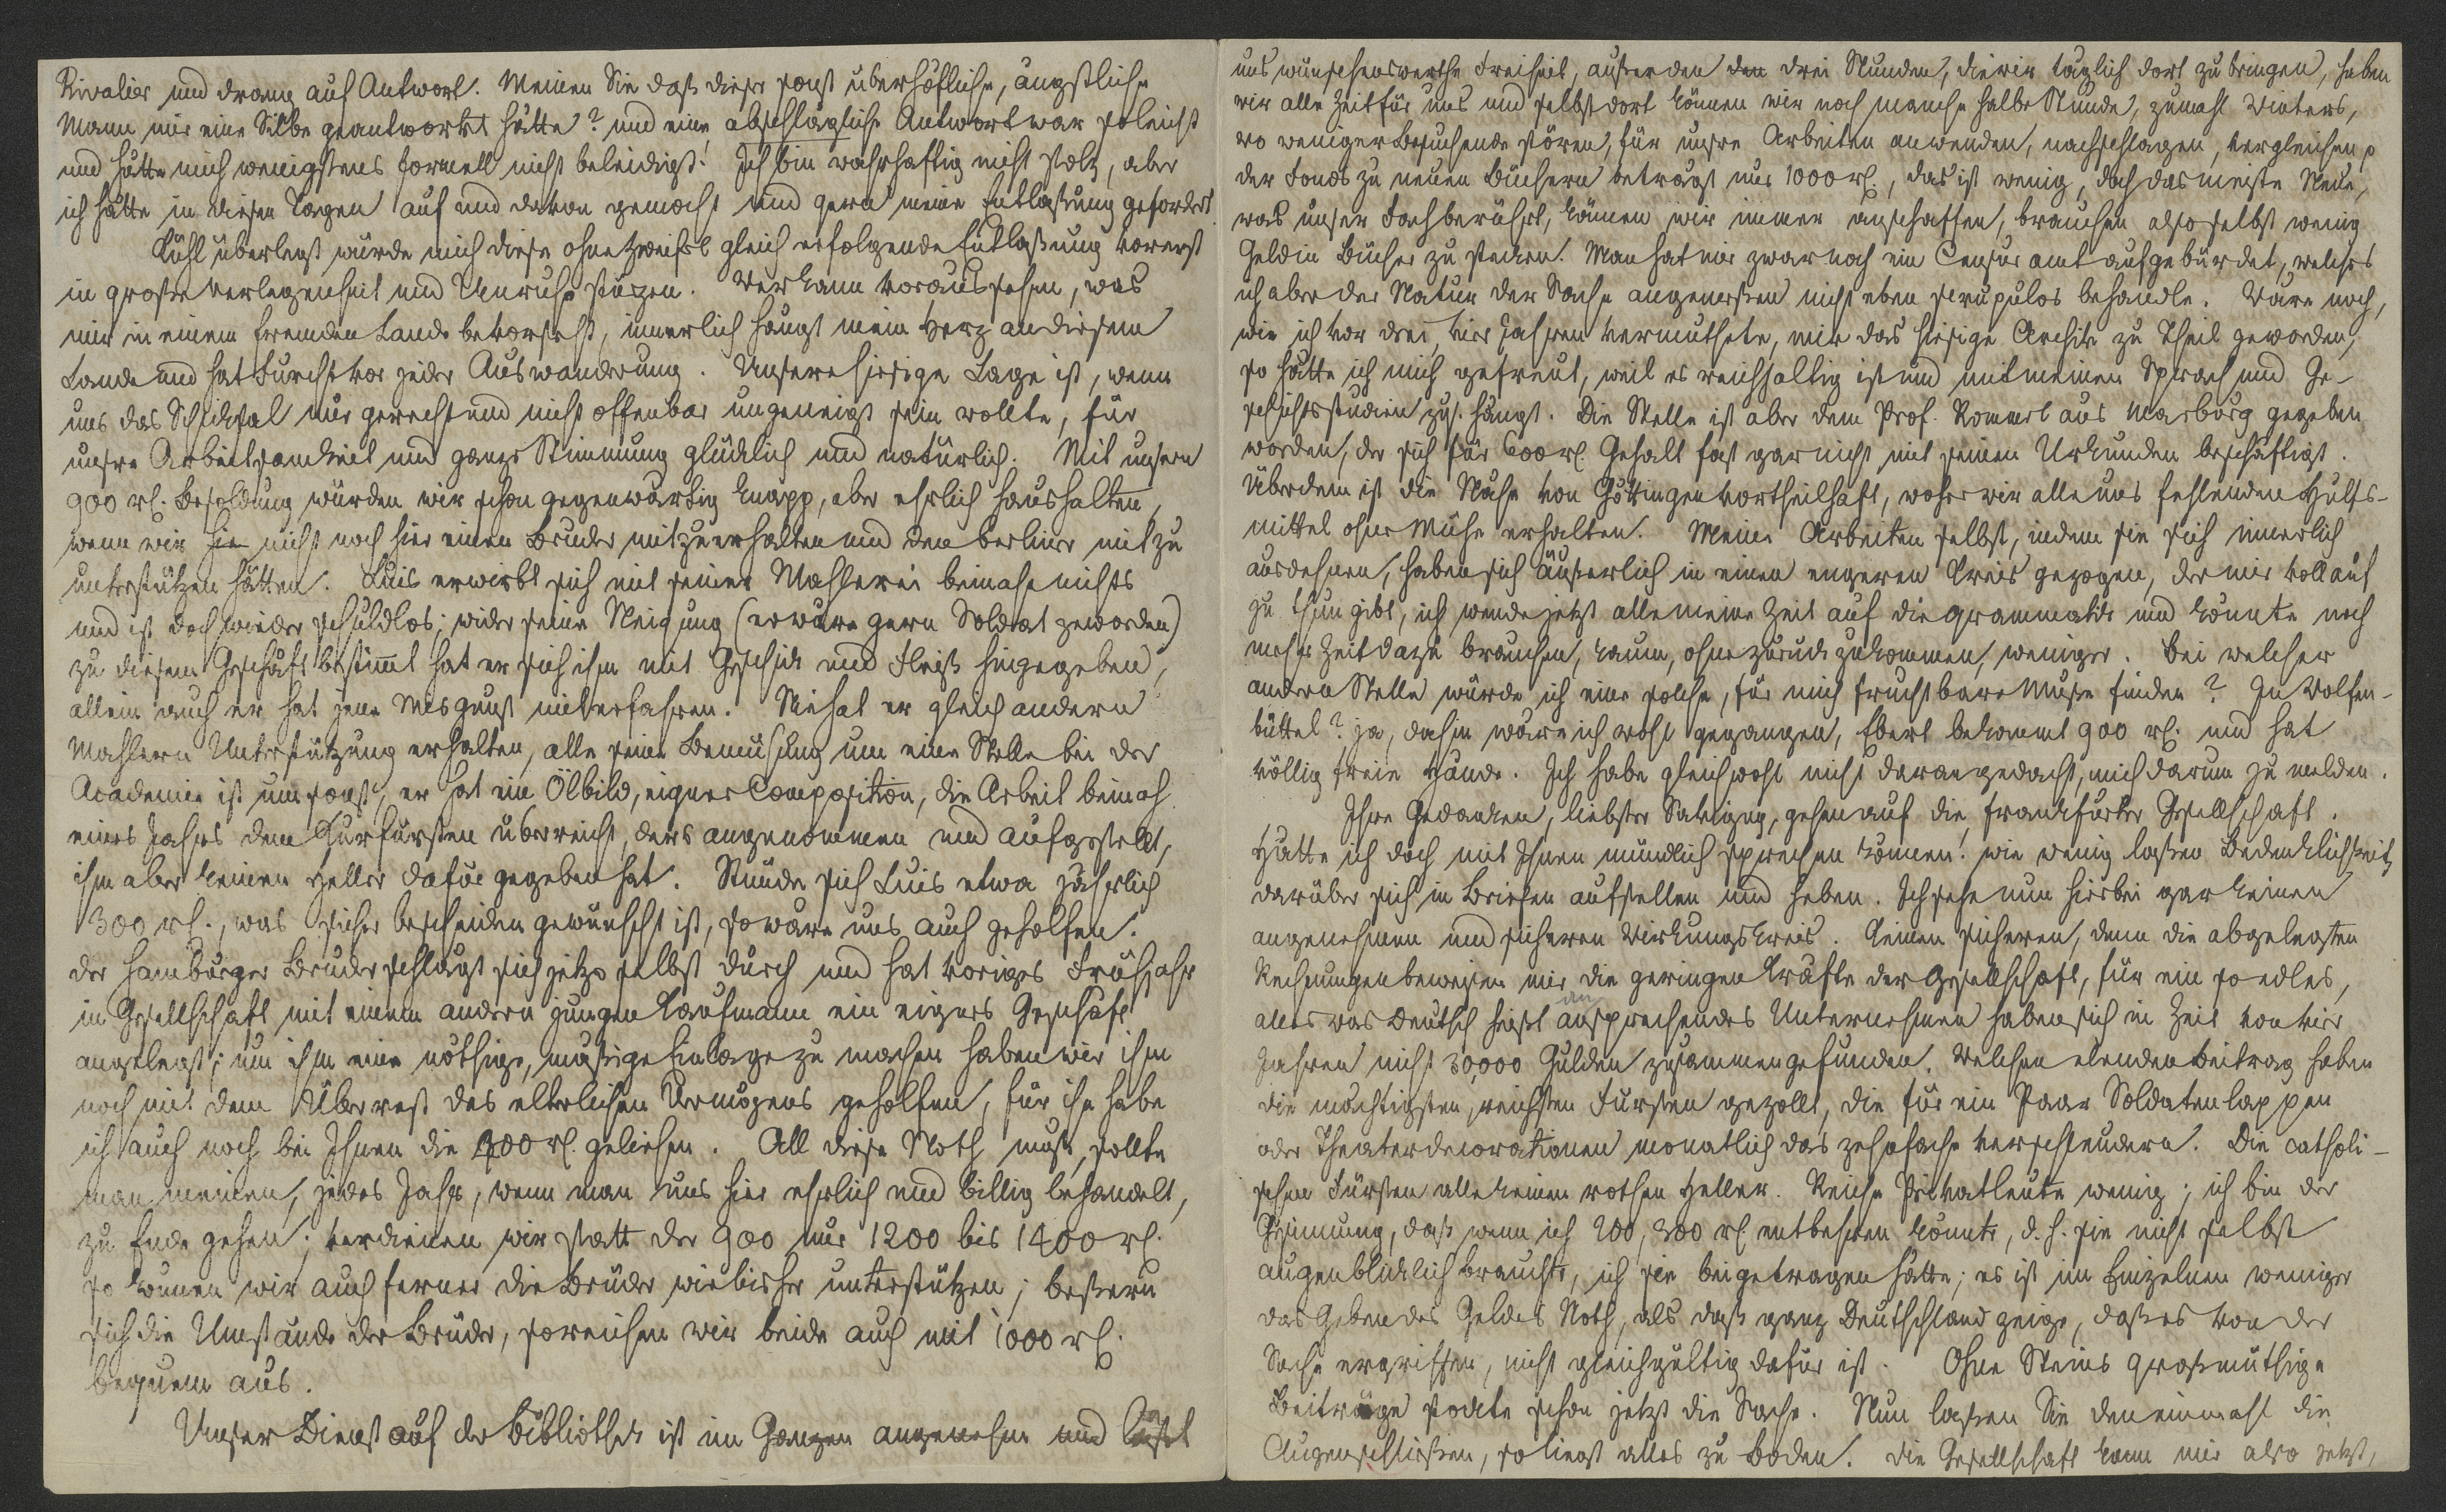 Rivalier und drang auf Antwort. Meinen Sie daß dieser sonst überhöfliche, ängstliche
Mann mir eine Silbe geantwortet hätte? und eine abschlägliche Antwort war so leicht
und hätte mich wenigstens formell nicht beleidigt! Ich bin wahrhaftig nicht stolz, aber
ich hätte in diesen Tagen auf und davon gemocht und gern meine Entlaßung gefordert
Kühl überlegt würde mich diese ohne Zweifel gleich erfolgende Entlaßung vorerst
in große Verlegenheit und Unruhe stürzen. Wer kann voraus sehen, was
mir in einem fremden Lande bevorsteht, innerlich hängt mein Herz an diesem
Lande und hat Furcht vor jeder Auswanderung. Unsere hiesige Lage ist, wenn
uns das Schicksal nur gerecht und nicht offenbar ungeneigt sein wollte, für
unsre Arbeitsamkeit und ganze Stimmung glücklich und natürlich. Mit unsern
900 rl. Besoldung würden wir schon gegenwärtig knapp, aber ehrlich haushalten,
wenn wir hie nicht noch hier einen Bruder mitzuerhalten und den berliner mit zu
unterstützen hätten. Luis erwirbt sich mit seiner Mahlerei beinahe nichts
und ist doch wieder schuldlos; wider seine Neigung (er wäre gern Soldat geworden)
zu diesem Geschäft bestimmt hat er sich ihm mit Geschick und Fleiß hingegeben,
allein auch er hat jene Misgunst miterfahren. Nie hat er gleich andern
Mahlern Unterstützung erhalten, alle seine Bemühung um eine Stelle bei der
Academie ist umsonst, er hat ein Ölbild, eigner Composition, die Arbeit beinah
eines Jahres dem Kurfürsten überreicht, ders angenommen und aufgestellt,
ihm aber keinen Heller dafür gegeben hat. Stünde sich Luis etwa jährlich
300 rl., was sicher bescheiden gewünscht ist, so wäre uns auch geholfen.
der Hamburger Bruder schlägt sich jetzo selbst durch und hat voriges Frühjahr
in Gesellschaft mit einem andern jungen Kaufmann ein eignes Geschäft
angelegt; um ihm eine nöthige, mäßige Einlage zu machen haben wir ihm
noch mit dem Überrest des elterlichen Vermögens geholfen, für ihn habe
ich auch noch bei Ihnen die 200 rl. geliehen. All diese Noth muß, sollte
man meinen, jedes Jahr, wenn man uns hier ehrlich und billig behandelt,
zu Ende gehen; verdienen wir statt der 900 nur 1200 bis 1400 rl.
so können wir auch ferner die Brüder wie bisher unterstützen; beßern
sich die Umstände der Brüder, so reichen wir beide auch mit 1000 rl.
bequem aus.
Unser Dienst auf der Bibliothek ist im Ganzen angenehm und läßt
uns wünschenswerthe Freiheit, außer den den drei Stunden, die wir täglich dort zubringen, haben
wir alle Zeit für uns und selbst dort können wir noch manche halbe Stunde, zumahl Winters,
wo weniger Besuchende stören, für unsre Arbeiten anwenden, nachschlagen, vergleichen p
der Fonds zu neuen Büchern beträgt nur 1000 rl., das ist wenig, doch das meiste Neue,
was unser Fach berührt, können wir immer anschaffen, brauchen also selbst wenig
Geld in Bücher zu stecken. Man hat mir zwar noch ein Censur amt aufgebürdet, welches
ich aber der Natur der Sache angemeßen nicht eben scrupulos behandle. Wäre noch,
wie ich vor drei, vier Jahren vermuthete, mir das hiesige Archiv zu Theil geworden,
so hätte ich mich gefreut, weil es reichhaltig ist und mit meinen Sprach und Ge-
schichtsstudien zus. hängt. Die Stelle ist aber dem Prof. Rommel aus Marburg gegeben
worden, der sich für 600 rl. Gehalt fast gar nicht mit seinen Urkunden beschäftigt.
Überdem ist die Nähe von Göttingen vortheilhaft, woher wir alle uns fehlenden Hülfs-
mittel ohne Mühe erhalten. Meine Arbeiten selbst, indem sie sich innerlich
ausdehnen, haben sich äußerlich in einen engeren Kreis gezogen, der mir vollauf
zu thun gibt, ich wende jetzt alle meine Zeit auf die grammatik und könnte noch
mehr Zeit dazu brauchen, kaum, ohne zurück zukommen, weniger. Bei welcher
andern Stelle würde ich eine solche, für mich fruchtbare Muße finden? In Wolfen-
büttel? ja, dahin wäre ich wohl gegangen, Ebert bekommt 900 rl. und hat
völlig freie Hände. Ich habe gleichwohl nicht daran gedacht, mich darum zu melden.
Ihre Gedanken, liebster Savigny, gehen auf die frankfurter Gesellschaft.
Hätte ich doch mit Ihnen mündlich sprechen können! wie wenig laßen Bedenklichkeiten
darüber sich in Briefen aufstellen und heben. Ich sehe nun hierbei gar keinen
angenehmen und sicheren Wirkungskreis. Keinen sicheren, denn die abgelegten
Rechnungen beweisen mir die geringen Kräfte der Gesellschaft, für ein so edles,
alles was Deutsch heißt ansprechendes Unternehmen haben sich in Zeit von vier
Jahren nicht 30,000 Gulden zusammengefunden. Welchen elenden Beitrag haben
die mächtigsten, reichsten Fürsten gezollt, die für ein Paar Soldatenlappen
oder Theaterdecorationen monatlich das zehnfache verschleudern. Die catholi-
schen Fürsten alle keinen rothen Heller. Reiche Privatleute wenig; ich bin der
Gesinnung, daß wenn ich 200, 300 rl. entbehren könnte, d. h. sie nicht selbst
augenblicklich brauchte, ich sie beigetragen hätte; es ist im Einzelnen weniger
das Geben des Geldes Noth, als daß ganz Deutschland zeige, daß es von der
Sache ergriffen, nicht gleichgültig dafür ist. Ohne Steins großmüthige
Beiträge stockte schon jetzt die Sache. Nun laßen Sie den einmahl die
Augen schließen, so liegt alles zu Boden. die Gesellschaft kann mir also jetzt,